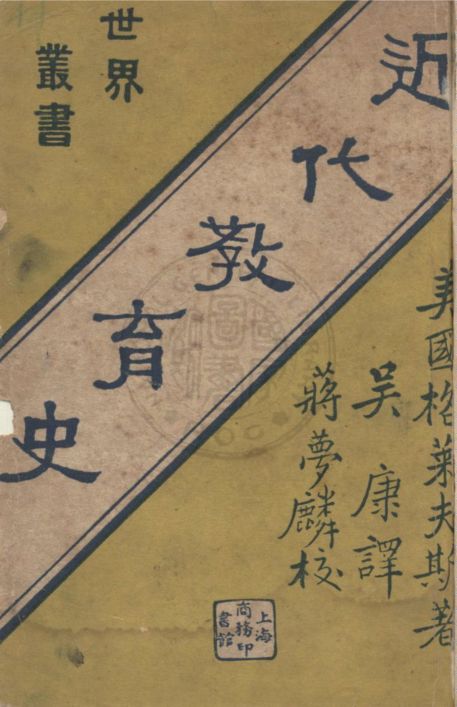 世界
叢書
近代教育史
美國格萊夫斯著
吳康譯
蔣夢麟校
上海
商務印
書館